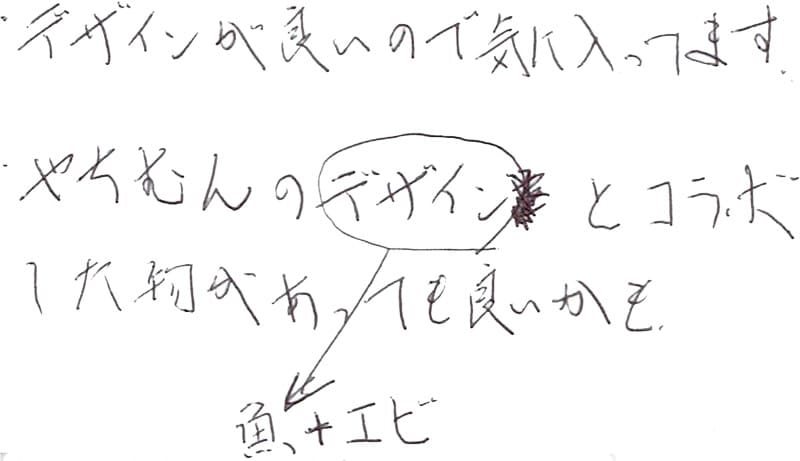 ・デザインが良いので気に入ってます.
・やちむんのデザインとコラボ
した物があっても良いかも.
魚+エビ